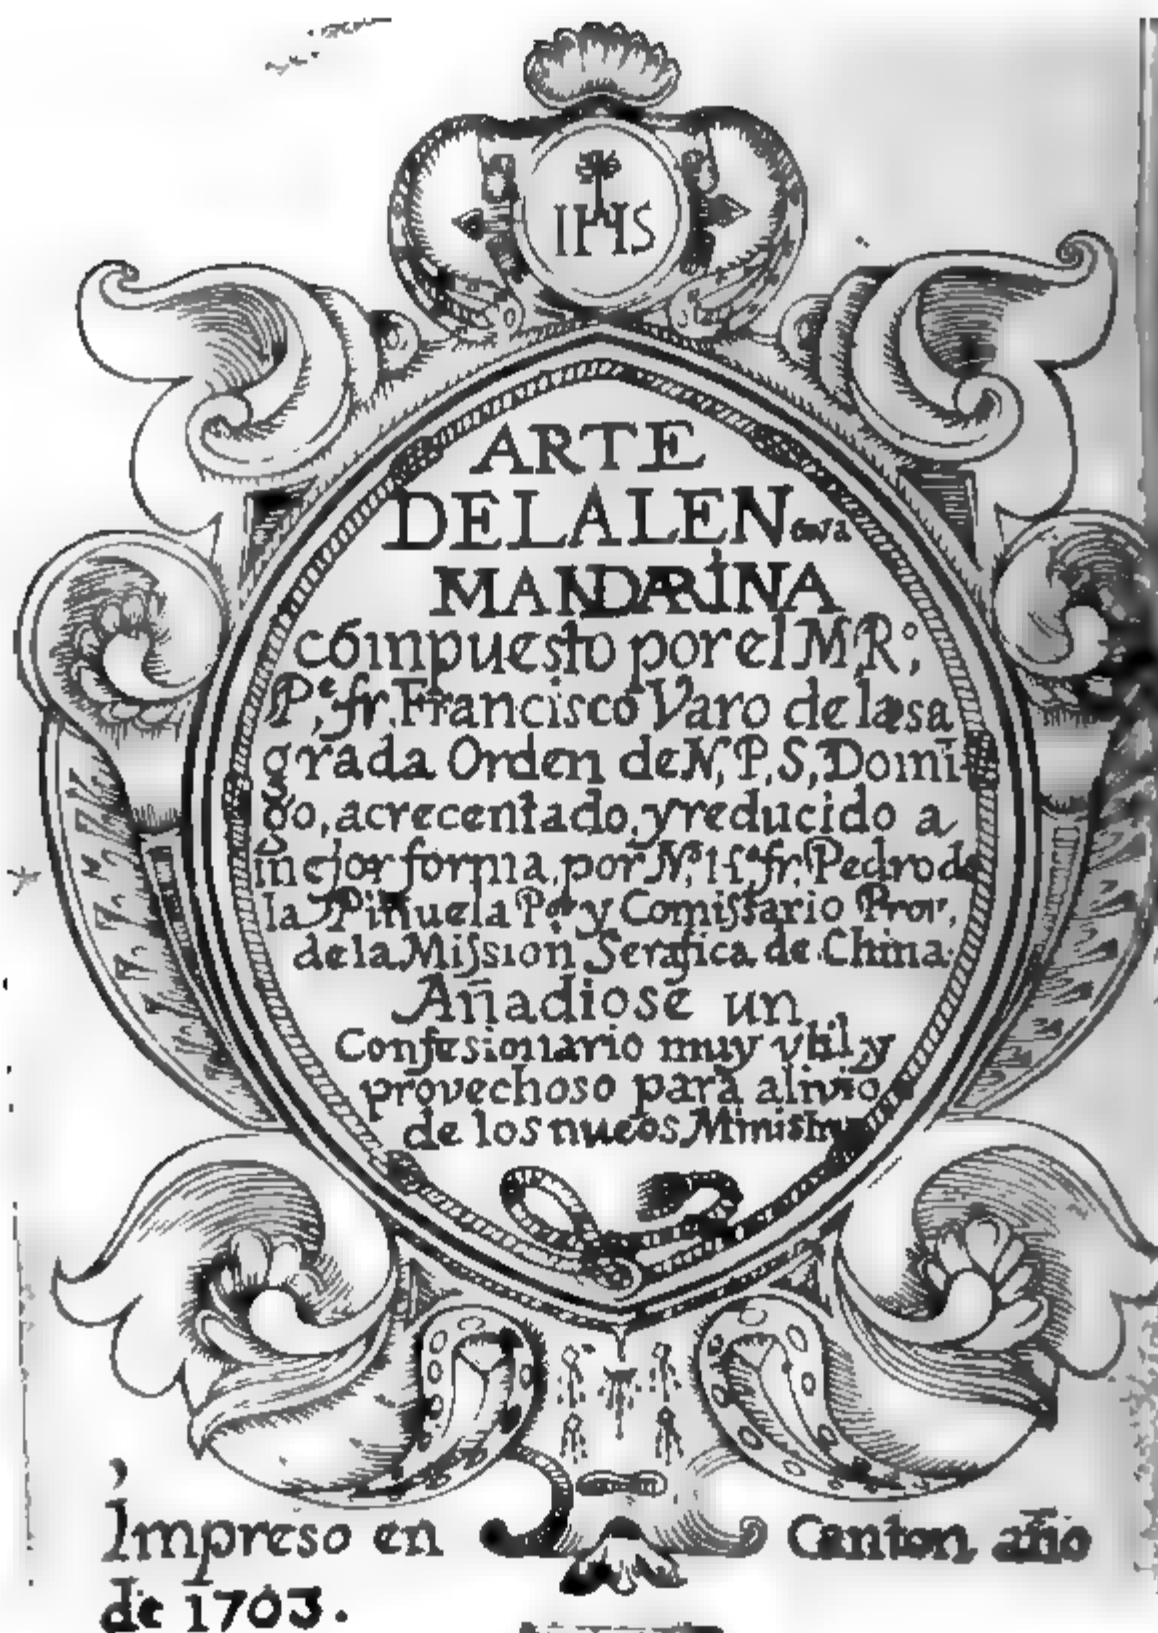 IHS
ARTE
DELALENgua
MANDARINA
cómpuesto por el M,R°;
P,e fr. Francisco Varo de la sa
grada Orden de N, P, S, Domī
go, acrecentado, y reducido a
mejor forma, por N, H,o fr, Pedro de
la Piñuela P,or y Comissario Prov,
de la Mission Serafica de China.
Añadiose un
Confesionario muy vtil, y
provechoso para alivio
de los nueos Ministros
Impreso en Canton año
de 1703.